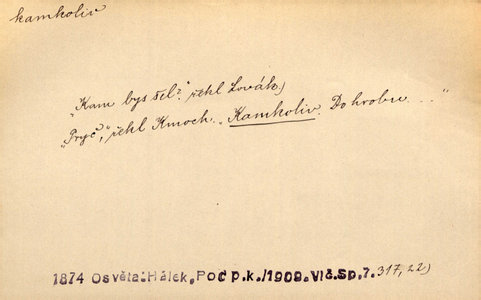 kamkoliv
"Kam bys šel?" řekl Lovák.)
"Pryč", řekl Kmoch. "Kamkoliv. Do hrobu ..."
1874 Osvěta: Hálek, Pod p.k./1909. Vlč. Sp. 7. 317, 22)